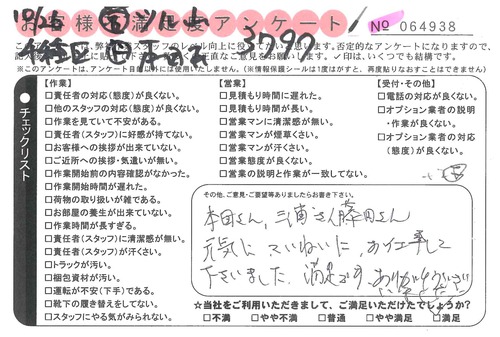 お客様満足度アンケート
No 064938
3797
※このアンケートは、アンケート目的以外には使用いたしません。(※情報保護シールは1度はがすと、再度貼りなおすことはできません)
チェックリスト
【作業】
□責任者の対応(態度)が良くない。
□他のスタッフの対応(態度)が良くない。
□作業を見ていて不安がある。
□責任者(スタッフ)に好感が持てない。
□お客様への挨拶が出来ていない。
□ご近所への挨拶・気遣いが無い。
□作業開始前の内容確認がなかった。
□作業開始時間が遅れた。
□荷物の取り扱いが雑である。
□お部屋の養生が出来ていない。
□作業時間が長すぎる。
□責任者(スタッフ)に清潔感が無い。
□責任者(スタッフ)が汗くさい。
□トラックが汚い。
□梱包資材が汚い。
□運転が不安(下手)である。
□靴下の履き替えをしてない。
□スタッフにやる気がみられない。
【営業】
□見積もり時間に遅れた。
□見積もり時間が長い。
□営業マンに清潔感が無い。
□営業マンが煙草くさい。
□営業マンが汗くさい。
□営業態度が良くない。
□営業の説明と作業が一致してない。
【受付・その他】
□電話の対応が良くない。
□オプション業者の説明・作業が良くない。
□オプション業者の対応(態度)が良くない。
その他、ご意見・ご要望等ありましたらお書き下さい。
本田さん、三浦さん藤田さん
元気に、ていねいに、お仕事して
下さいました。満足です。ありがとうございました
☆当社をご利用いただきまして、ご満足いただけたでしょうか?
□不満 □やや不満 □普通 □やや満足 □満足